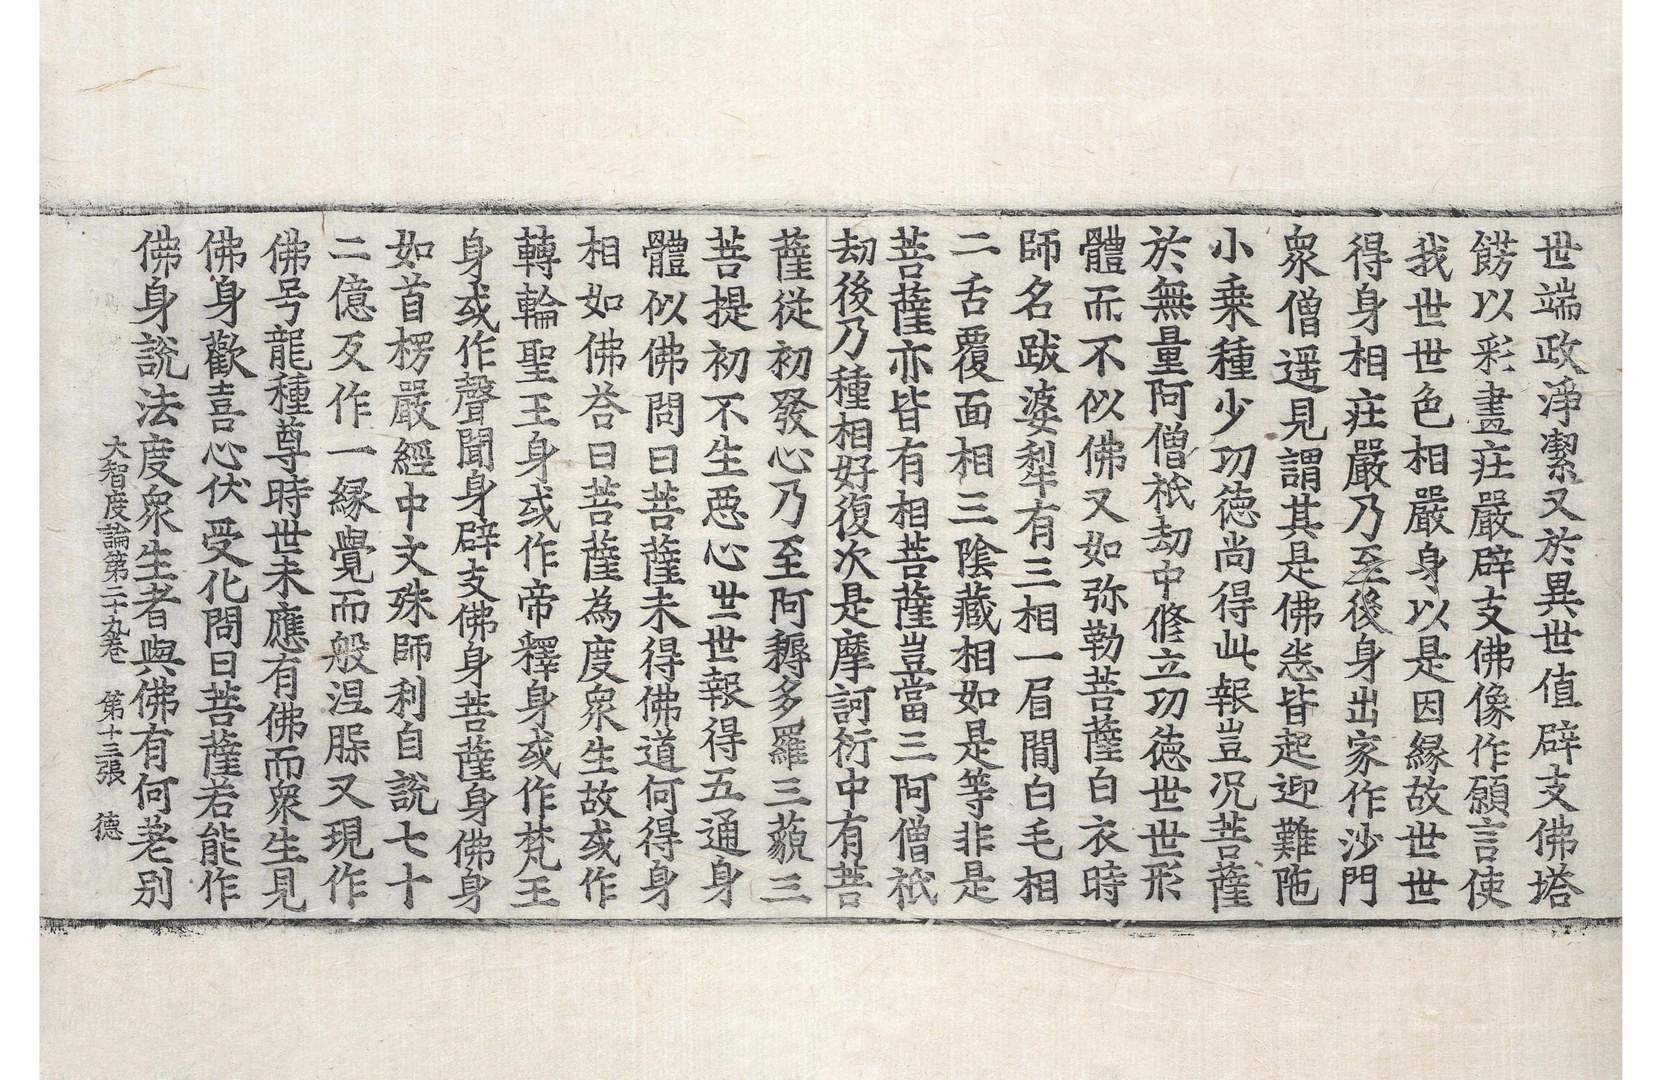 世端政淨潔又於異世值辟支佛塔
餝以彩畫庄嚴辟支佛像作願言使
我世世色相嚴身以是因緣故世世
得身相庄嚴乃至後身出家作沙門
衆僧遥見謂其是佛悉皆起迎難陁
小乗種少功徳尚得此報豈况菩薩
於無量阿僧祇劫中修立功徳世世形
體而不似佛又如弥勒菩薩白衣時
師名跋婆犁有三相一眉間白毛相
二舌覆面相三隂藏相如是等非是
菩薩亦皆有相菩薩豈當三阿僧祇
劫後乃種相好復次是摩訶衍中有菩
薩従初發心乃至阿耨多羅三藐三
菩提初不生惡心世世報得五通身
體似佛問曰菩薩未得佛道何得身
相如佛荅曰菩薩為度衆生故或作
轉輪聖王身或作帝釋身或作梵王
身或作聲聞身辟支佛身菩薩身佛身
如首楞嚴經中文殊師利自說七十
二億反作一緣覺而般涅槃又現作
佛号龍種尊時世未應有佛而衆生見
佛身歡喜心伏受化問曰菩薩若能作
佛身說法度衆生者與佛有何差别
大智度論第二十九卷　第十三張　德